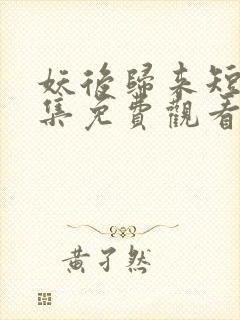 妖後歸來短
集免費觀看
黃孑然